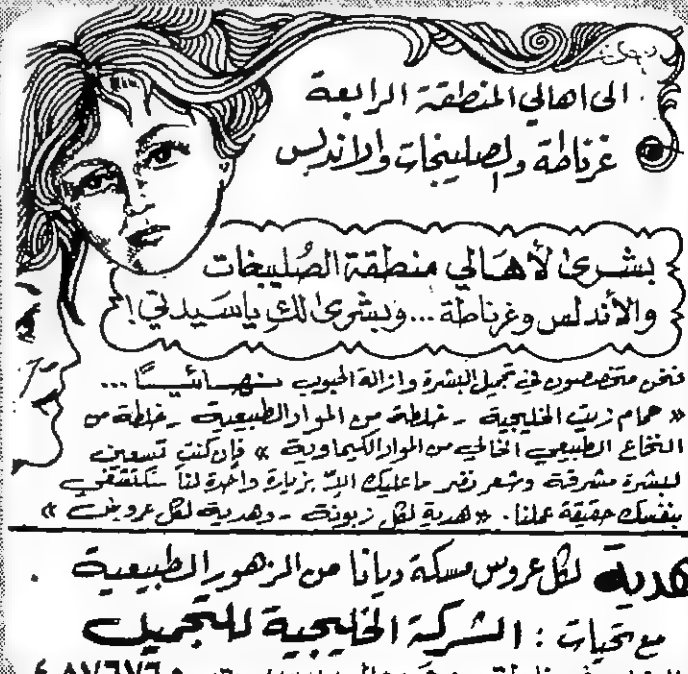 الى اهالي المنطقة الرابعة
غرناطة والصليبخات والاندلس
بشرى لأهالي منطقة الصُليبخات
والأندلس وغرناطة ... وبشرى لكِ ياسَيدتي !
فنحن متخصصون في تجميل البشرة وازالة الحبوب نهائيـًا ...
« حمام زيت الخليجية - خلطة من المواد الطبيعية - خلطة من
النخاع الطبيعي الخالي من المواد الكيماوية » فإن كنتِ تسعين
لبشرة مشرقة وشعر نضر ما عليك الا بزيارة واحدة لنا ستكتشفي
بنفسك حقيقة عملنا . « هدية لكل زبونة - وهدية لكل عروس »
هدية لكل عروس مسكة ديانا من الزهور الطبيعية .
مع تحيات : الشركة الخليجية للتجميل